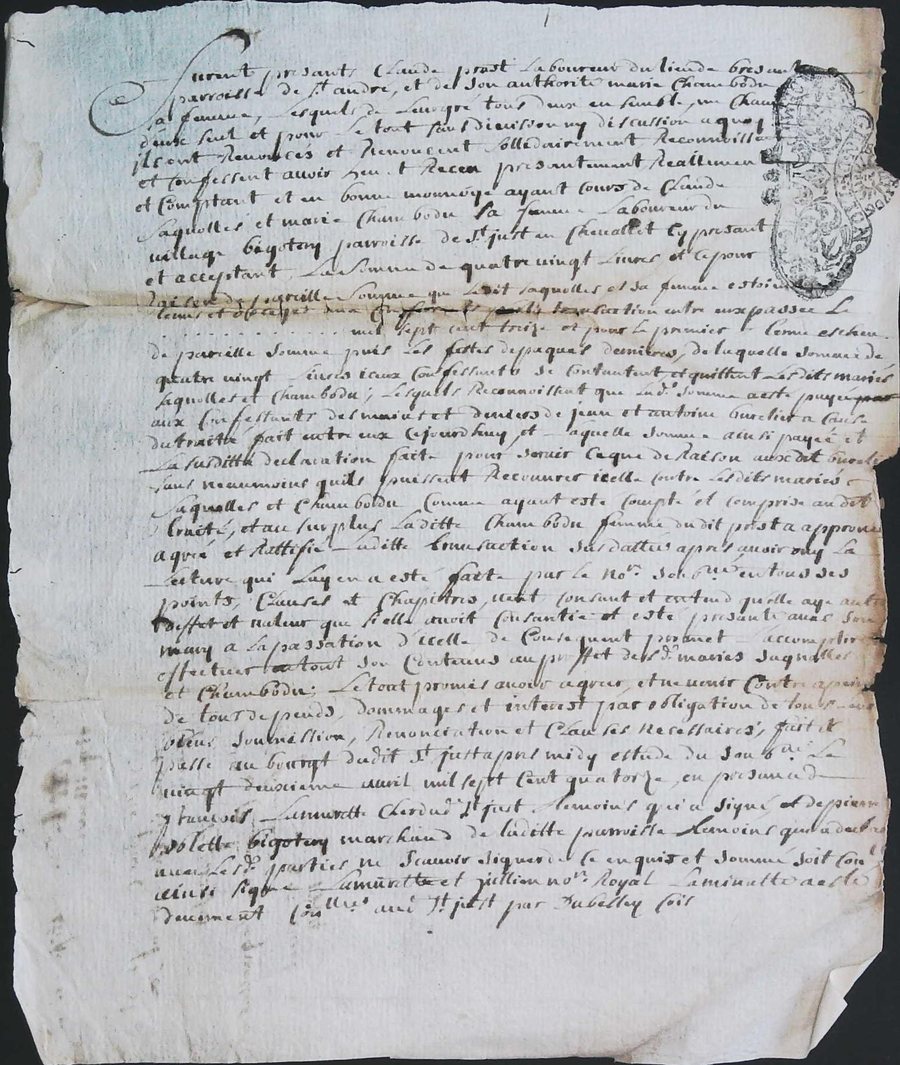 furent presants Claude prost Laboureur du lieu de bresant
parroisse de St andré, et de son authorité marie Chambodu
sa femme, Lesquels de Leurgré tous deux ensemble, un Chacun
d'eux seul et pour Le tout sans division ny discussion a quoy
ils ont Renoncés et Renoncent sollidairement Reconnoissent
et Confessent avoir heu et Receu presantement Reallement
et Comptant et en bonne monnoye ayant Cours de Claude
Saquolles et marie Chambodu sa femme Laboureur du
village bigotery parroisse de St just en Chevallet Cy presant
et acceptant La somme de quatre vingt Livres et Ce pour
raison de pareille somme que Ledit saquolles et sa femme
tenus et obligés aux transaction entre eux passée Le
mil sept cent treize et pour Le premier terme escheu
de pareille somme puis Les festes de paques dernieres, de laquelle somme de
quatre vingt Livres iceux Confessants se Contentent et quittent Lesdits mariés
saquolles et Chambodu, Lesquels Reconnoissent que Lad. somme a esté payée
aux Confessants des mains et deniers de jean et antoine burelier a Cause
du traité fait entre eux Cejourdhuy, et Laquelle somme ainsi payée et
La susditte declaration faite pour servir Ce que de Raison auxdit
sans neaumoins quils puissent Recouvrer icelle Contre Lesdits mariés
Saquolles et Chambodu Comme ayant esté Compté et Comprise audit
traité, et au surplus Laditte Chambodu femme dudit prost a approuvé
agréé et Rattifié Laditte transaction susdattée apres avoir ouy La
Lecture qui Luy en a esté faite par le nore en tous ses
points, Clauses et Chapitres, veut Consent et entend qu'elle aye autant
d'effet et valeur que si elle avoit Consantie et esté presante avec son
mary a La passation d'icelle, de Consequent promet L'accomplir
effectuer son Contenus au proffet desd. mariés saquolles
et Chambodu; Le tout promis avoir agréer, et ne venir Contre a peine
de tous depends, dommages et interest par obligation de tous
biens soumission, Renonciation et Clauses necessaires, fait et
passé au bourgt dudit St just apres midy estude du Le
vingt deuxieme avril mil sept Cent quatorze, en presance de
françois Lamurette Clerdud. St just temoins qui a signé, et de pierre
bigotery marchand de laditte parroisse temoins qui a declaré
avec Lesd. parties ne Scavoir signer de Ce enquis et sommé soit
ainsi signé Lamurette et jullien nore Royal La minutte a esté
deuement St just par Dubessey